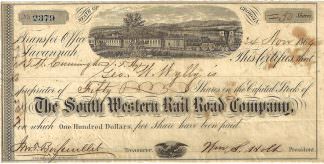 STATE OF GEORGIA
No. 2379
= 50 Shares
Transfer Office
Savannah
24 Nov 1864
This certifies that
Geo. W. Wylly is
proprietor of Fifty Shares in the Capital Stock of
The South Western Rail Road Company,
on which One Hundred Dollars, per Share have been paid.
Treasurer.
Wm S. Holt
President